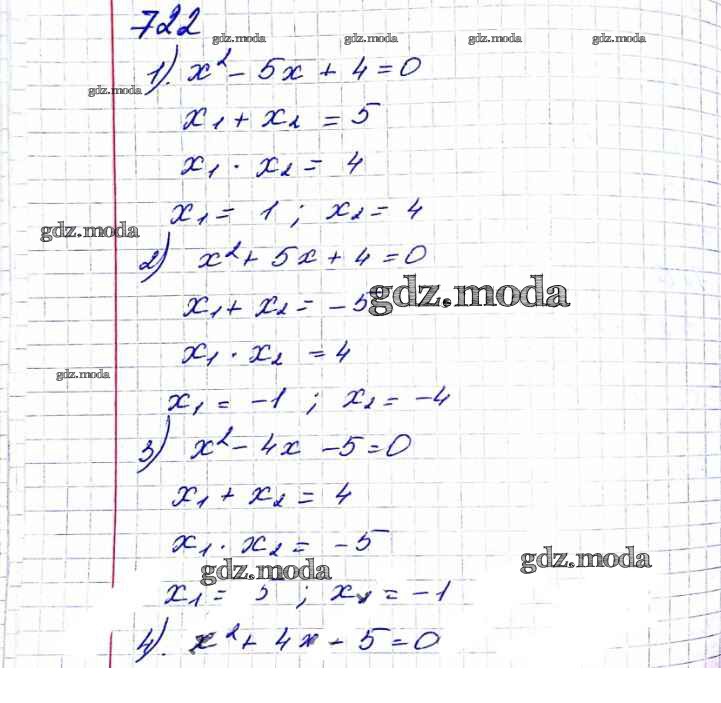 722
gdz.moda gdz.moda gdz.moda gdz.moda
1). x² - 5x + 4 = 0
gdz.moda
x₁ + x₂ = 5
x₁ · x₂ = 4
x₁ = 1 ; x₂ = 4
gdz.moda
2) x² + 5x + 4 = 0
x₁ + x₂ = -5
gdz.moda
x₁ · x₂ = 4
gdz.moda
x₁ = -1 ; x₂ = -4
3) x² - 4x - 5 = 0
x₁ + x₂ = 4
x₁ · x₂ = -5
gdz.moda gdz.moda
x₁ = 5 ; x₂ = -1
4). x² + 4x - 5 = 0